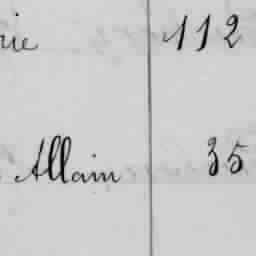 rie 112
Allain 35